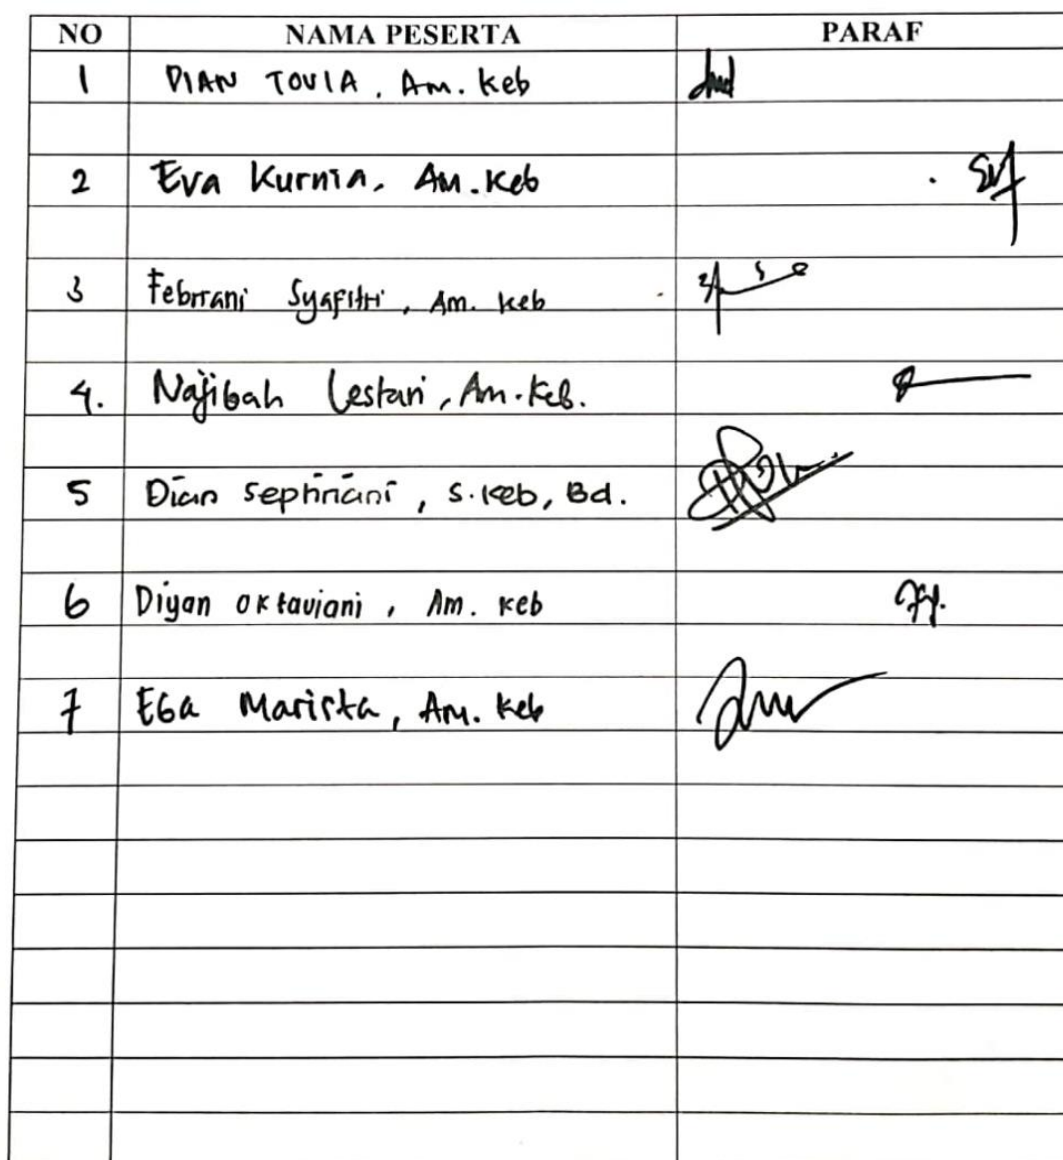 NO NAMA PESERTA PARAF
1 DIAN TOVIA, Am. Keb
2 Eva Kurnia, Am. Keb
3 Febriani Syafitri, Am. Keb
4. Najibah Lestari, Am. Keb.
5 Dian Septriani, S. Keb, Bd.
6 Diyan Oktaviani, Am. Keb
7 Ega Marista, Am. Keb